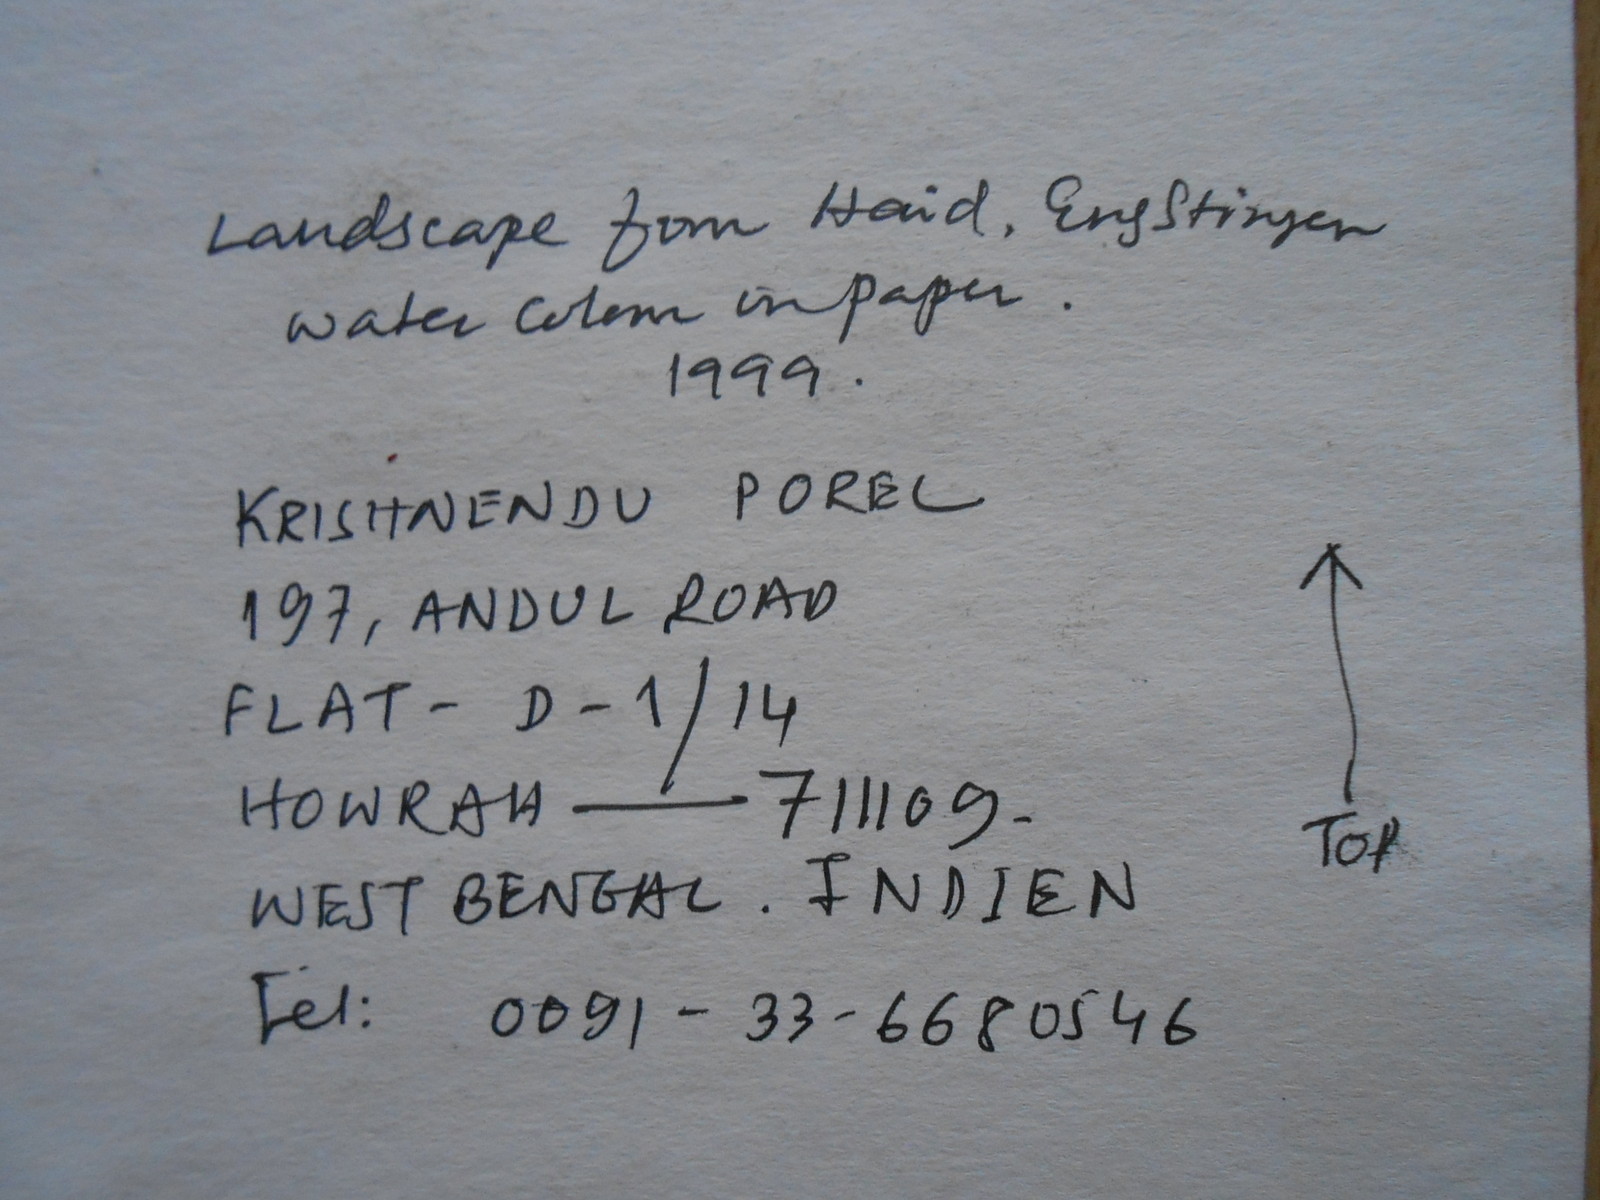 Landscape from Haid, Engstingen
water colour on paper.
1999.
KRISHNENDU POREL
197, ANDUL ROAD
FLAT - D - 1/14
HOWRAH — 711109-
WEST BENGAL. INDIEN
Tel: 0091 - 33 - 6680546
TOP